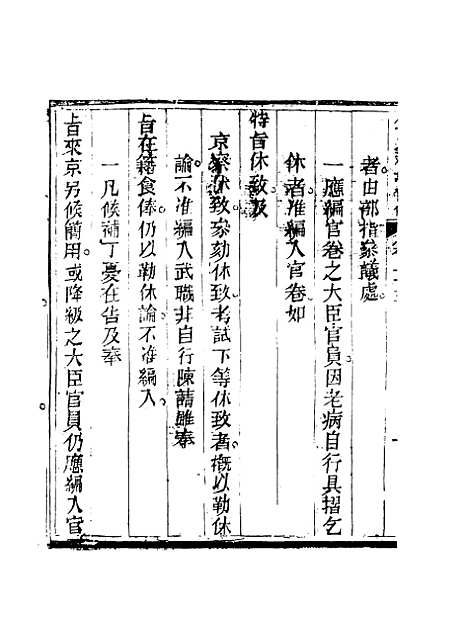 者由部指參議處
一應編官卷之大臣官員因老病自行具摺乞
休者准編入官卷如
特旨休致及
京察休致參劾休致考試下等休致者概以勒休
論不准編入武職非自行陳請雖奉
旨在籍食俸仍以勒休論不准編入
一凡候補丁憂在告及奉
旨來京另候簡用或降級之大臣官員仍應編入官